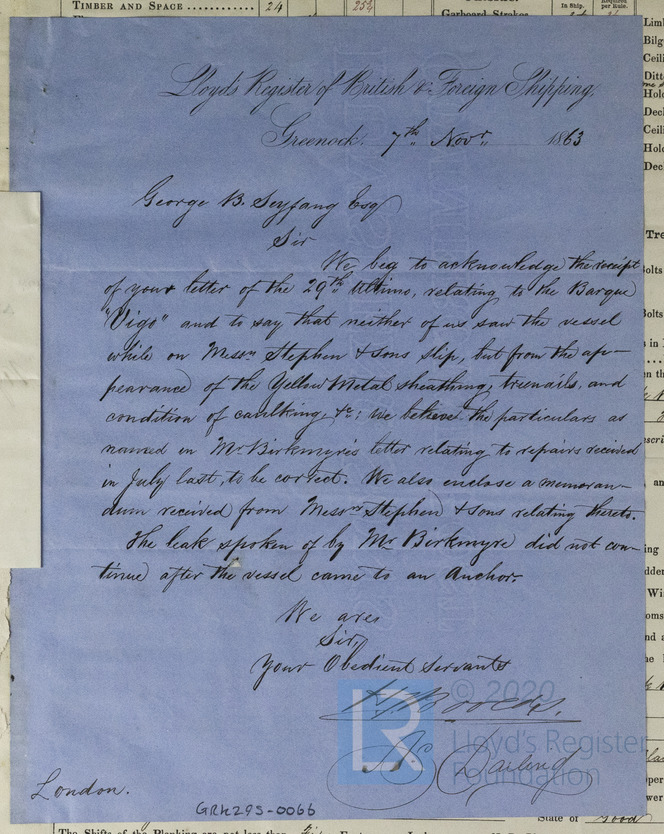 TIMBER AND SPACE ............ 24
Lloyd's Register of British & Foreign Shipping,
Greenock. 7th Novr. 1863
George B. Seyfang Esq
Sir
We beg to acknowledge the receipt
of your letter of the 29th Ultimo, relating to the Barque
"Vigo" and to say that neither of us saw the vessel
while on Messrs Stephen & Sons slip, but from the ap-
pearance of the Yellow Metal sheathing, treenails, and
condition of caulking, &c; we believe the particulars as
named in Mr Birkmyre's letter relating to repairs received
in July last, to be correct. We also enclose a memoran-
dum received from Messrs Stephen & Sons relating thereto.
The leak spoken of by Mr Birkmyre did not con-
tinue after the vessel came to an Anchor.
We are,
Sir,
Your Obedient Servants
© 2020
Lloyd's Register
Foundation
LR
Darling
London.
GRK295-0066
State of Good